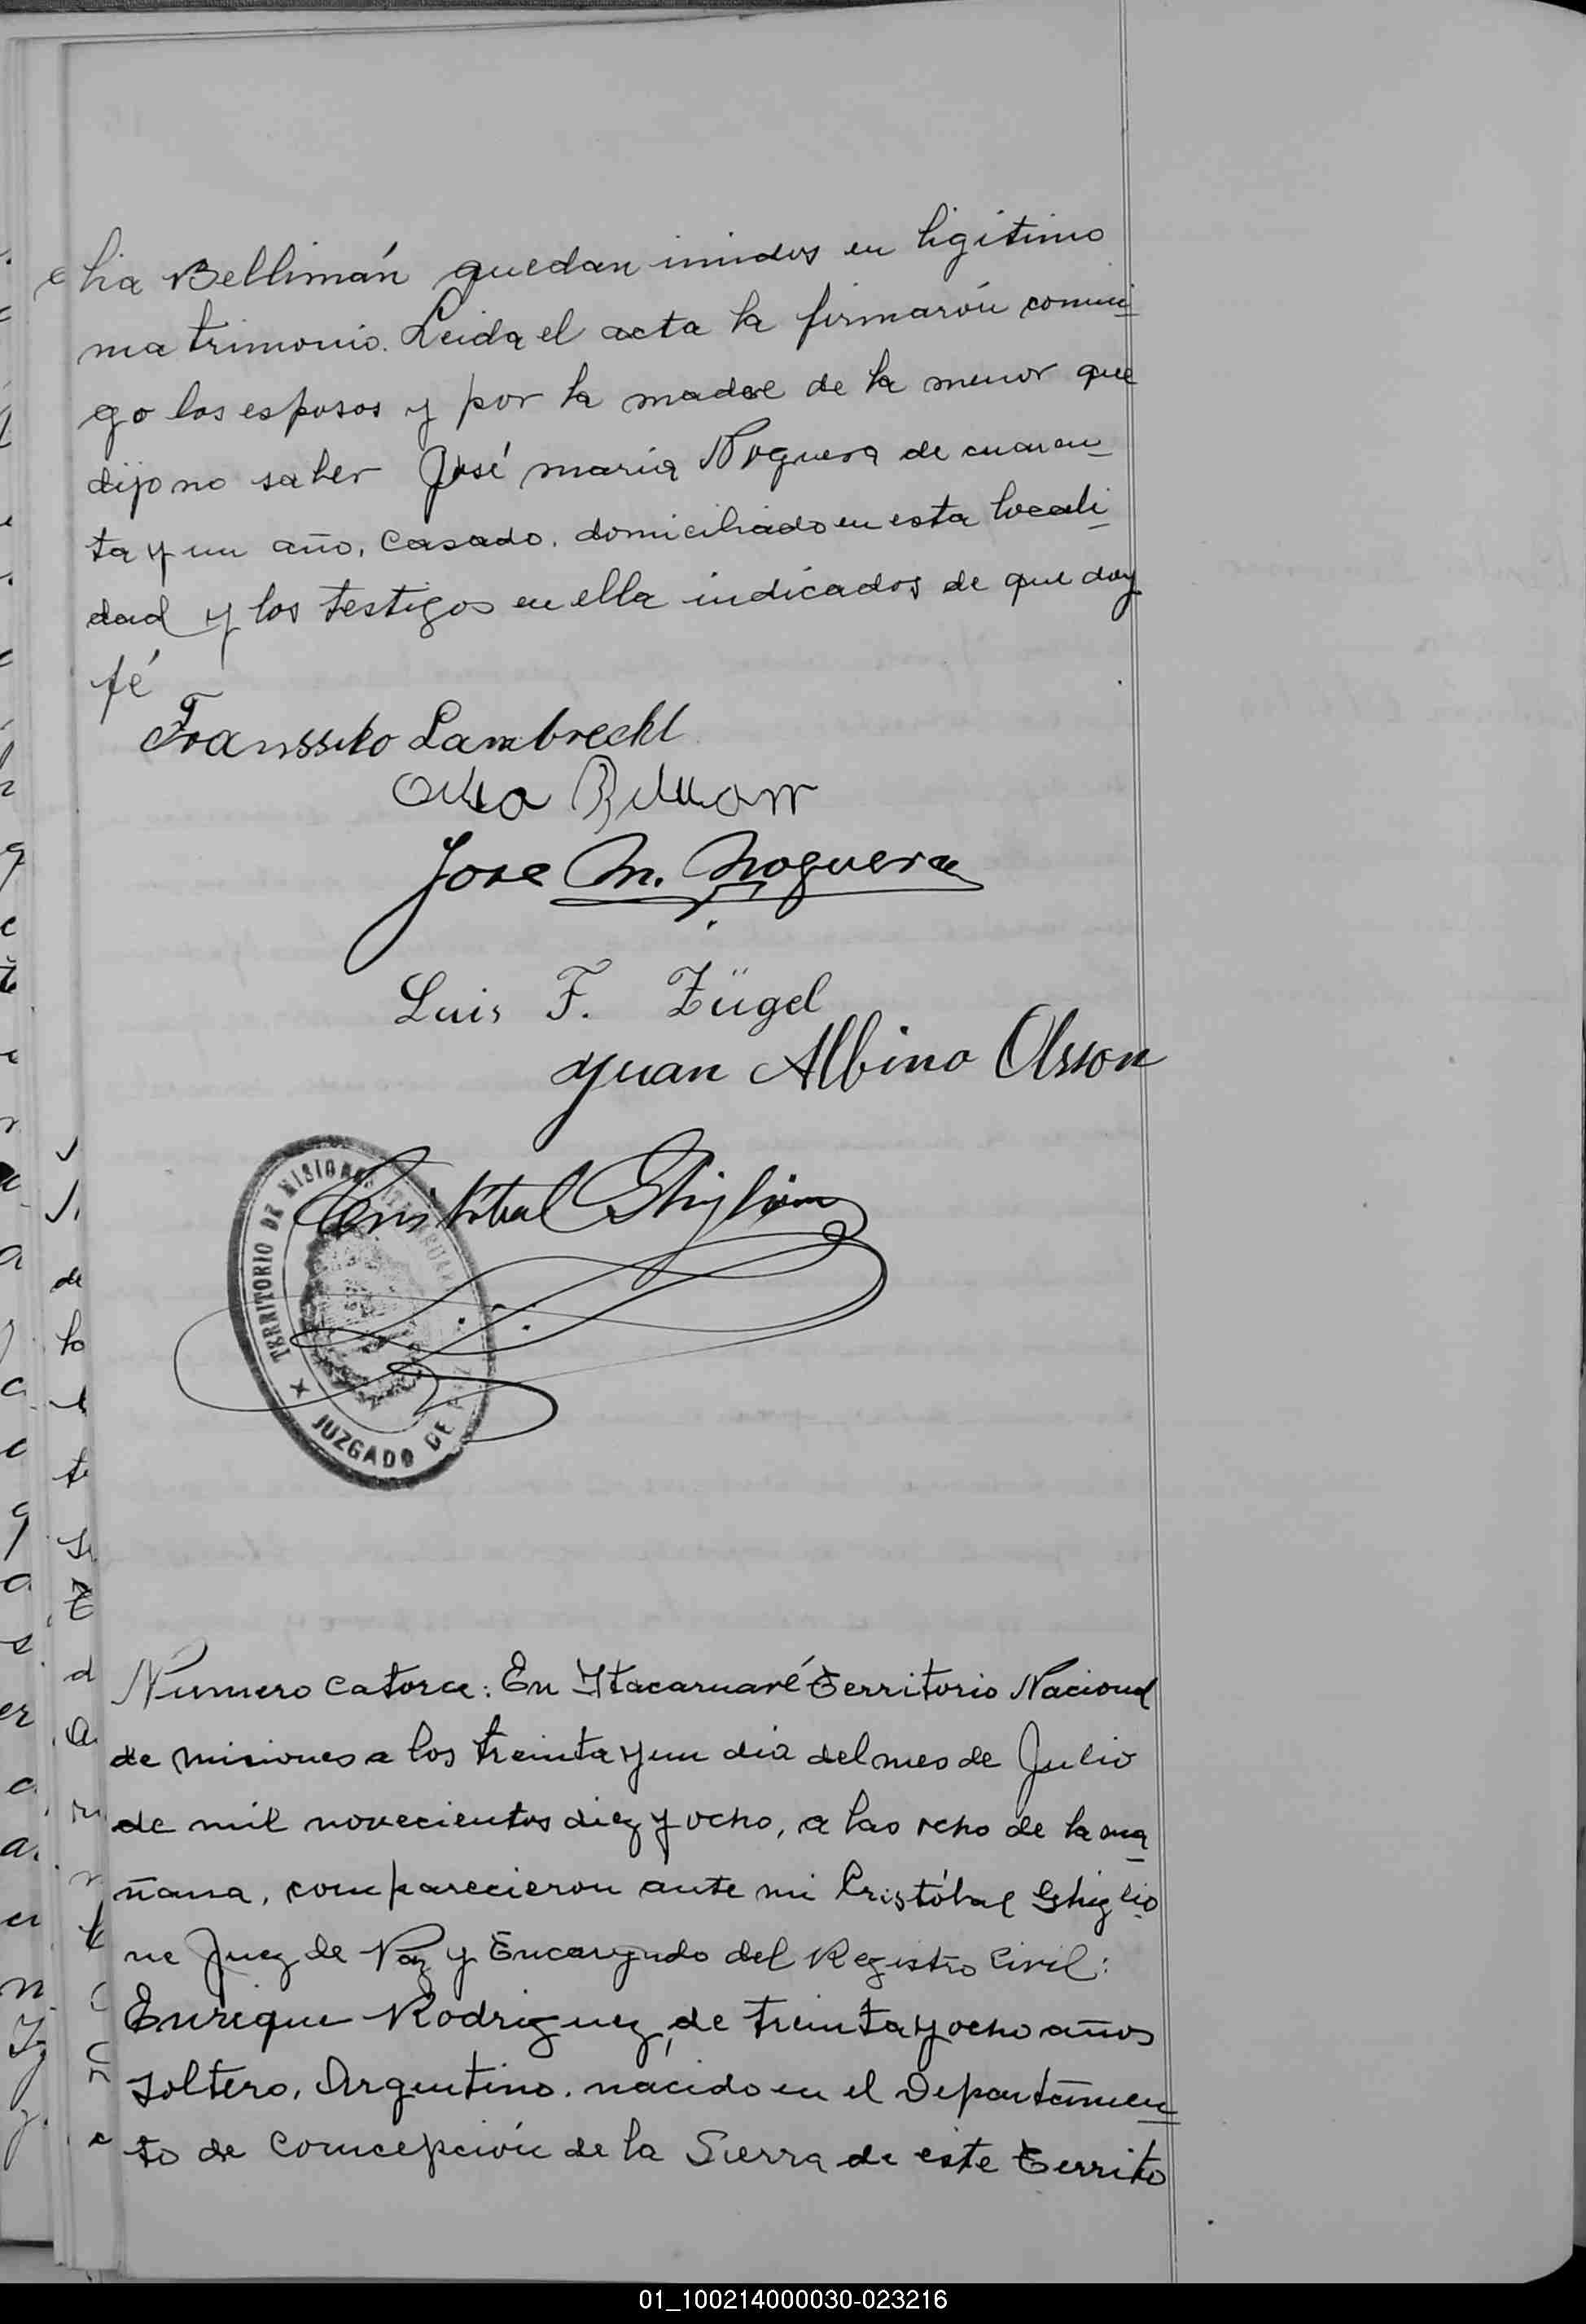 lia Bellimán quedan unidos en ligitimo
matrimonio. Leida el acta la firmarón conmi
go los esposos y por la madre de la menor que
dijo no saber José maria Noguera de cuaren
ta y un año, casado, domiciliado en esta locali
dad y los testigos en ella indicados de que doy
fé
Franssisko Lambrecht
Jose M. Noguera
Luis F. Zügel
Juan Albino Olsson
Cristóbal Ghiglione
TERRITORIO DE MISIONES ITACARUARÉ
JUZGADO DE PAZ
Numero catorce: En Itacaruaré Territorio Nacional
de misiones a los treinta y un dia del mes de Julio
de mil novecientos diez y ocho, a las ocho de la ma
ñana, comparecieron ante mi Cristóbal Ghiglio
ne Juez de Paz y Encargado del Registro Civil:
Enrique Rodriguez, de treinta y ocho años
soltero, Argentino, nacido en el Departamen
to de Comcepción de la Sierra de este Territo
01_100214000030-023216